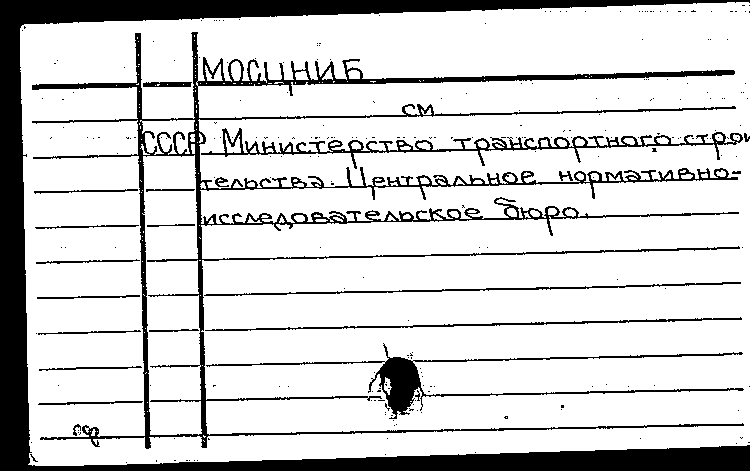 МОСЦНИБ
см
СССР. Министерство транспортного строи
тельства. Центральное нормативно-
исследовательское бюро.